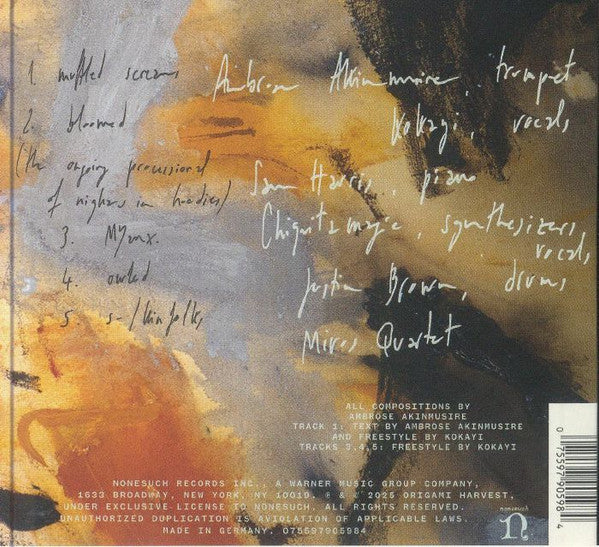 1. muffled screams
2. bloomed
(the ongoing processional
of nighas in hoodies)
3. MYanx.
4. owled
5. s-/kinfolks
Ambrose Akinmusire, trumpet
Kokayi, vocals
Sam Harris, piano
Chiquitamagic, synthesizers,
vocals
Justin Brown, drums
Mivos Quartet
ALL COMPOSITIONS BY
AMBROSE AKINMUSIRE
TRACK 1: TEXT BY AMBROSE AKINMUSIRE
AND FREESTYLE BY KOKAYI
TRACKS 3,4,5: FREESTYLE BY KOKAYI
NONESUCH RECORDS INC., A WARNER MUSIC GROUP COMPANY,
1633 BROADWAY, NEW YORK, NY 10019. ℗ & © 2025 ORIGAMI HARVEST,
UNDER EXCLUSIVE LICENSE TO NONESUCH. ALL RIGHTS RESERVED.
UNAUTHORIZED DUPLICATION IS A VIOLATION OF APPLICABLE LAWS.
MADE IN GERMANY. 075597905984
nonesuch
n
0 75597 90598 4